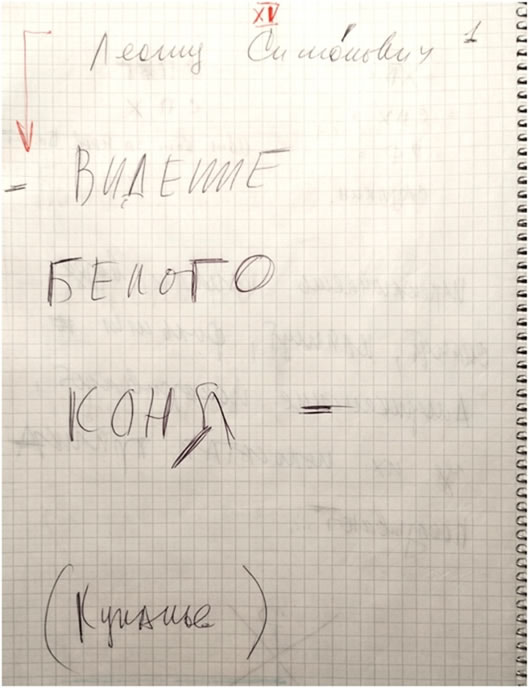 XV
Леонид Симонович 1
= ВИДЕНИЕ
БЕЛОГО
КОНЯ =
(Купанье)